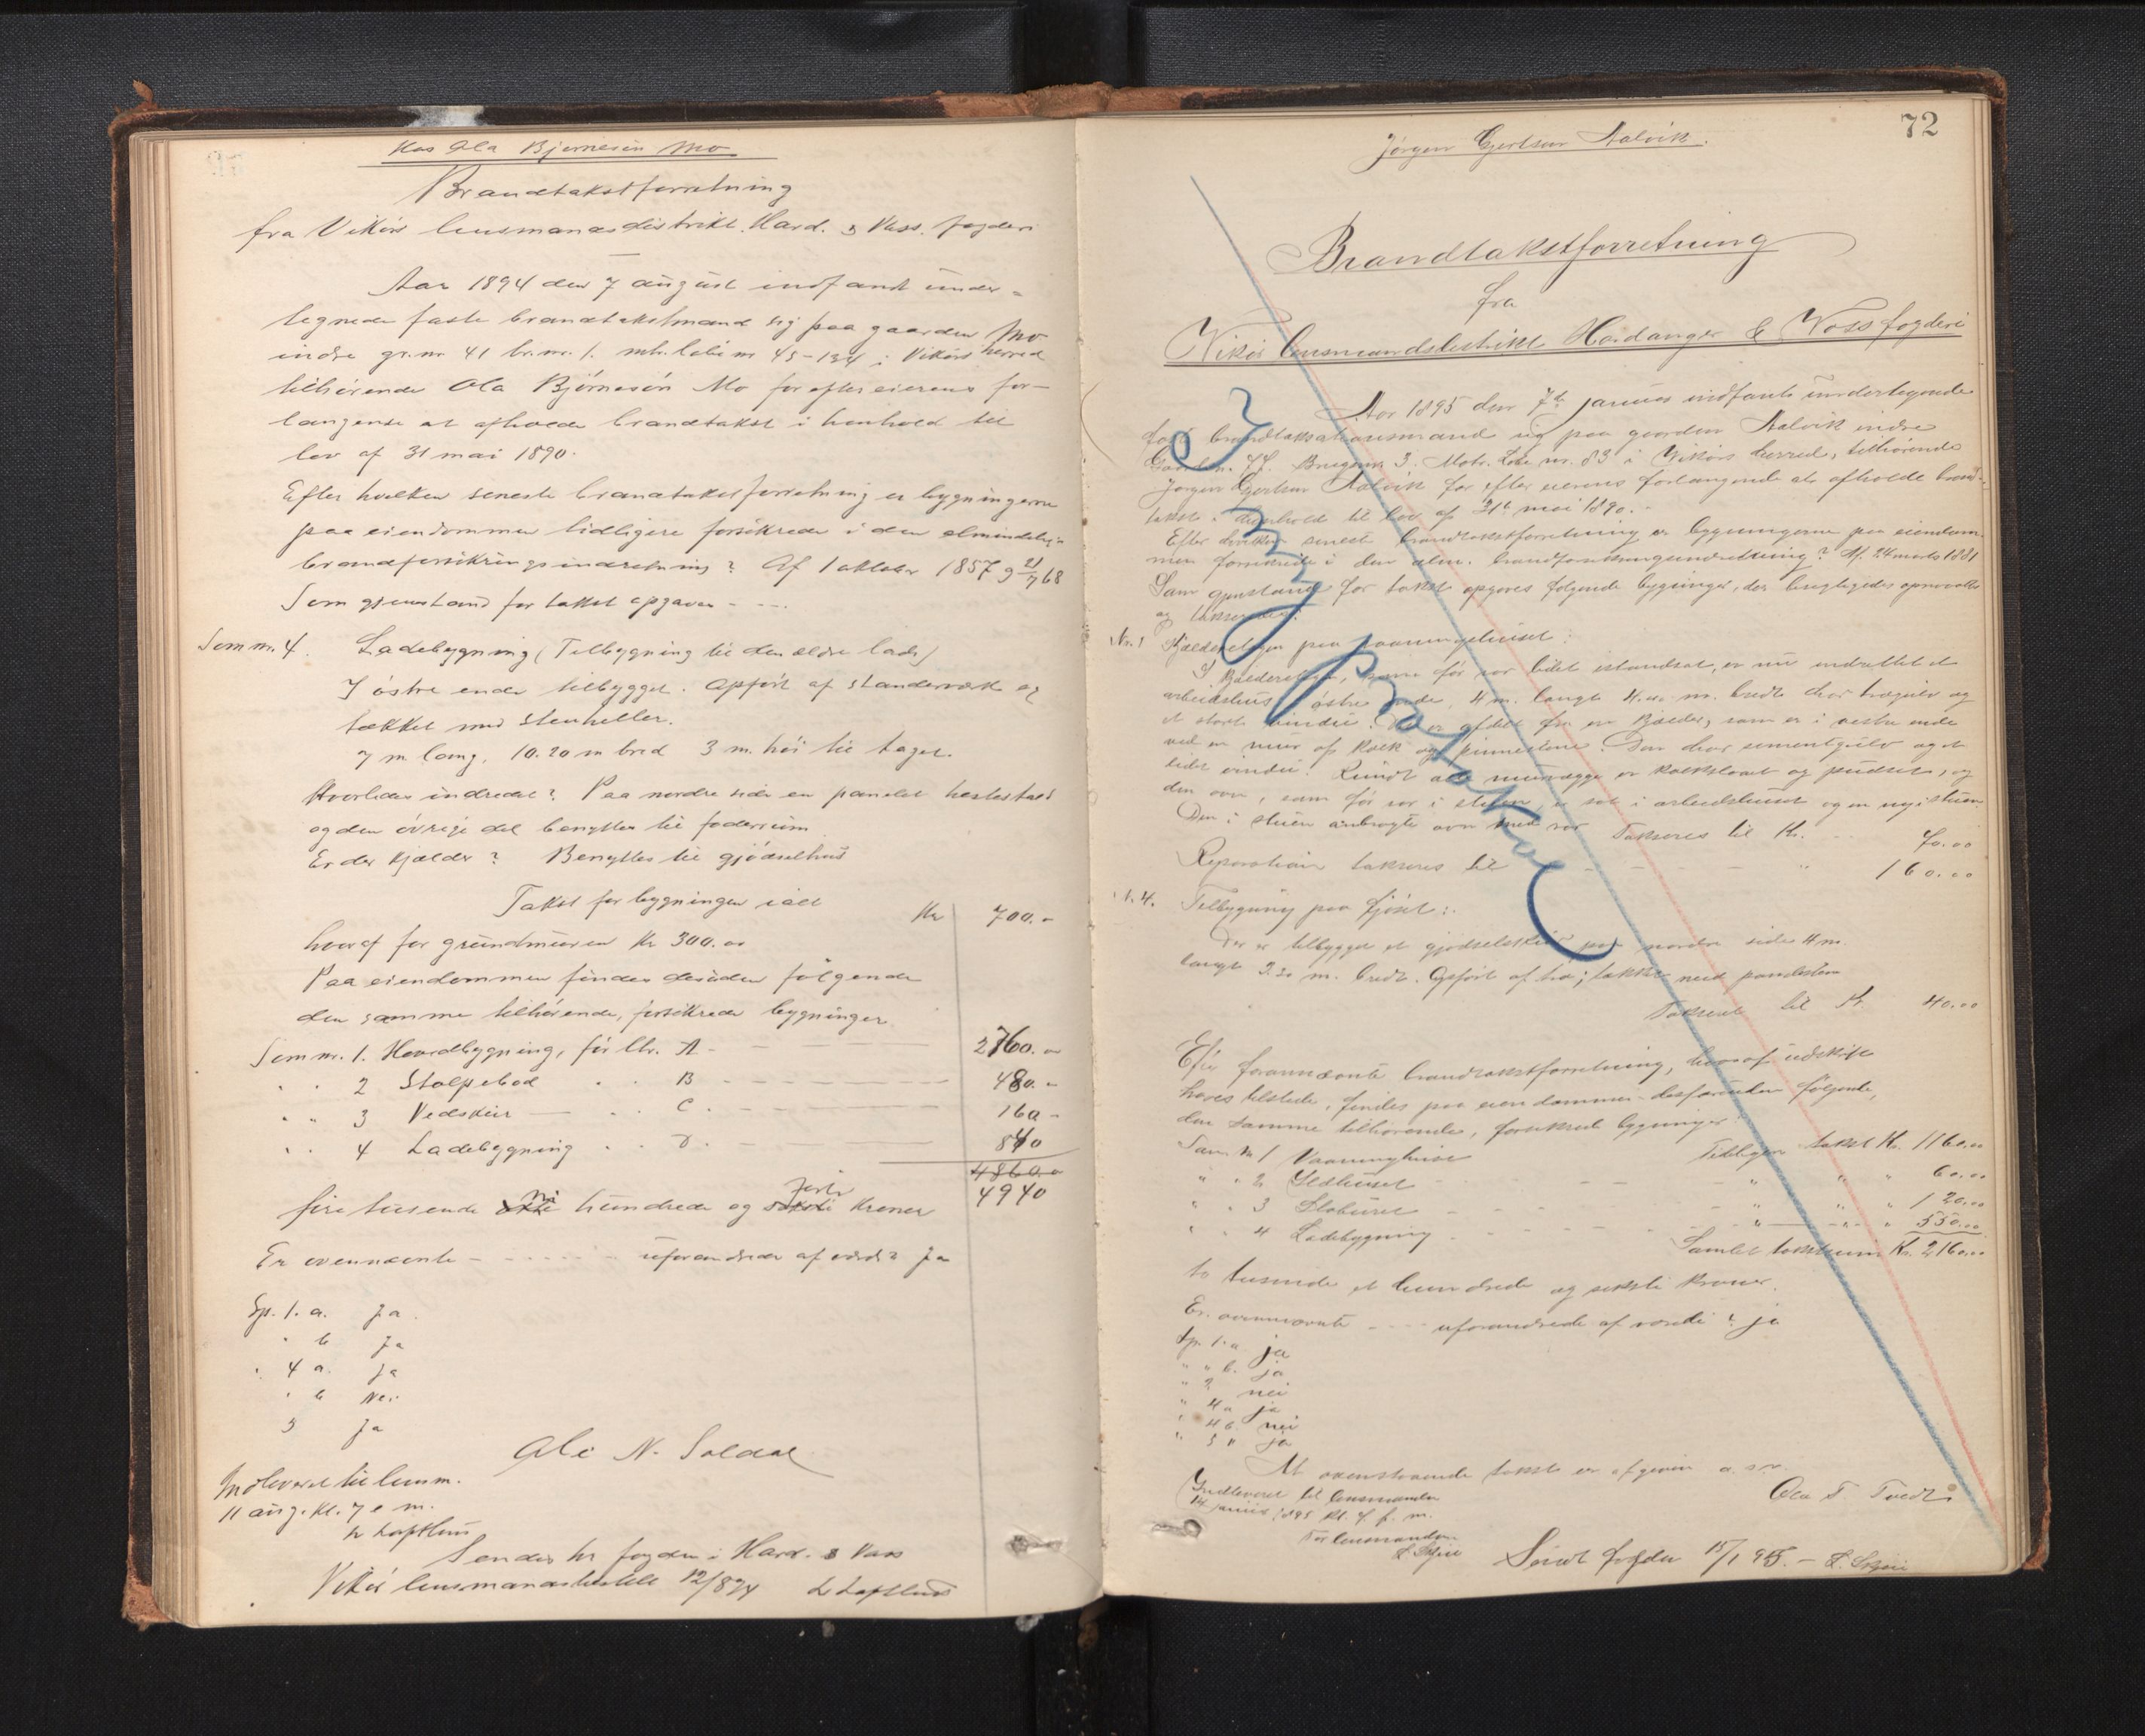 Hos Ola Bjørnesøn Mo
Brandtakstforretning
fra Vikørs lensmandsdistrikt. Hard. & Voss. fogderi
Aar 1894 den 7 august indfandt under-
tegnede faste brandtakstmand sig paa gaarden Mo
indre gr.nr. 41 br.nr. 1. mtr. løbenr 45-134 i Vikørs herred
tilhørende Ola Bjørnesøn Mo for efter eierens for-
langende at afholde brandtakst i henhold til
lov af 31 mai 1890.
Efter hvilken seneste brandtakstforretning er bygningerne
paa eiendommen tidligere forsikrede i den almindelige
brandforsikringsindretning? Af 1 oktober 1857 og 21/7 68
Som gjenstand for takst opgaves - - -.
Som nr. 4. Ladebygning (Tilbygning til den ældre lade)
I østre ende tilbygget. Opført af standerværk og
tækket med stenheller.
7 m lang, 10.20 m bred 3 m. høi til taget.
Hvorledes indredet? Paa nordre side en panelet hestestald
og den øvrige del benyttes til foderrum
Er der kjælder? Benyttes til gjødselhus
Takst for bygningen ialt Kr 700.-
hvoraf for grundmuren Kr 300.00
Paa eiendommen findes desuden følgende
den samme tilhørende, forsikrede bygninger
Som nr. 1. Hovedbygning, før ltr. A - 2760.00
" " 2 Stolpebod " " B - 480.-
" " 3 Vedskur " " C - 160-
" " 4 Ladebygning " " D - 840
4860.0
4940
fire tusende otte ni hundrede og seksti forti kroner
Er ovennævnte - - - uforandrede af værdi? Ja
Sp. 1. a. Ja
" b Ja
" 4 a. Ja
" b Nei
5 Ja
Ole N. Soldal
Indleveret til lensm.
11 aug. kl. 7 e m.
L Lofthus
Sendes hr fogden i Hard. & Voss
Vikør lensmandsbestill 12/8 94 L Lofthus
72
Jørgen Gjertsen Aalvik.
Brandtakstforretning
fra
Vikør lensmandsdistrikt Hardanger & Voss fogderi
Aar 1895 den 7de januar indfandt undertegnede
faste brandtaksationsmand sig paa gaarden Aalvik indre
Gaardsn. Brugsnr. 3. Matr. Løbe nr. 83 i Vikørs herred, tilhørende
Jørgen Gjertsen Aalvik for efter eierens forlangende at afholde brand-
takst i henhold til lov af 31te mai 1890.
Efter hvilken seneste brandtakstforretning er bygningerne paa eiendom-
men forsikrede i den alm. brandforsikringsindretning? Af 24 marts 1881
Som gjenstand for takst opgives følgende bygninger, der besigtigedes opmaaltes
og takseredes:
No. 1 Kjælderetagen paa vaaningshuset:
I kjælderetagen, som før var lidet istandsat, er nu indrettet et
arbeidshus i østre ende, 4 m. langt m. bredt har trægulv og
et stort vindu. Det er afdelt fra en kjælder, som er i vestre ende
ved en mur af kalk og kinnestene. Den har cementgulv og et
lidet vindu. Rundt alle murvægge er kalkslaaet og pudset, og
den ovn, som før var i stuen, er sat i arbeidshuset og en ny i stuen.
Den i stuen anbragte ovn med rør Takseres til Kr. 70.00
Reparation takseres til - - - " 160.00
N. 4. Tilbygning paa fjøset:
Der er tilbygget et gjødselskur paa nordre side 4 m.
langt 3.20 m. bredt. Opført af træ; tækket med pandesten
Takseret til Kr. 40.00
Efter forannævnte brandtakstforretning, hvoraf udskrift
haves tilstede, findes paa eiendommen desforuden følgende,
den samme tilhørende, forsikrede bygninger:
Som N 1 Vaaningshuset Tidligere takst Kr. 1160.00
" " 2 Ildhuset - - - " " " 60.00
" " 3 Stoburet - - - " " " 120.00
" " 4 Ladebygning - - - " " " 550.00
Samlet takstsum Kr. 2160.00
to tusinde et hundrede og seksti kroner.
Er ovennævnte - - - uforandrede af værdi? ja
Sp. 1.a ja
" " b. ja
" 2 nei
" 4 a ja
" 4 b. nei
" 5 " ja
At ovenstaaende takst er afgiven o. s. v.
Ola T Tvedt
Indleveret til lensmanden
14 januar 1895 kl. f. m.
For lensmanden
Sendt fogden 15/1 95. -